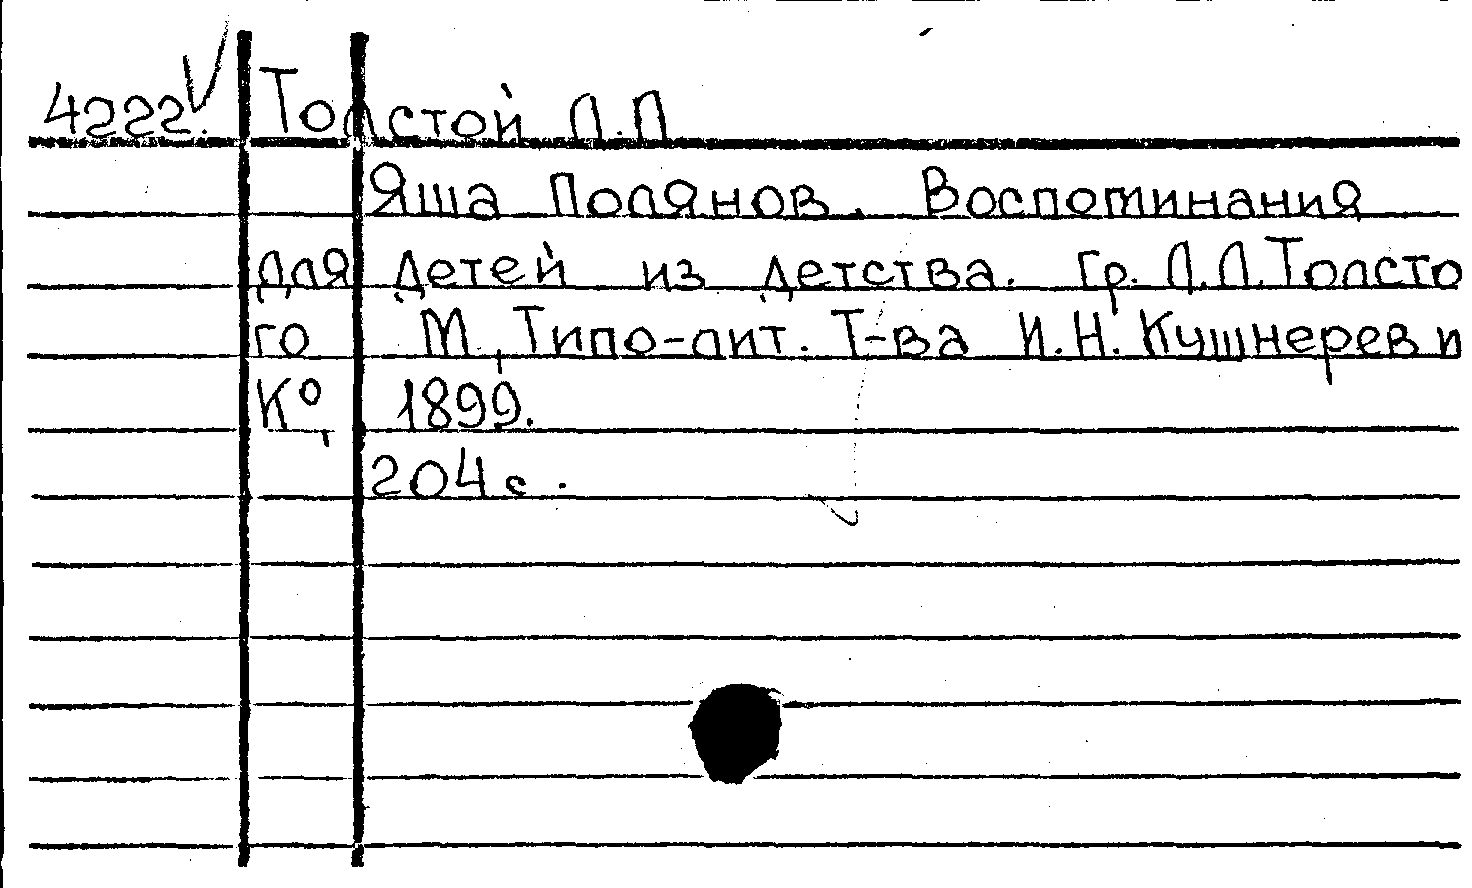 4222. Толстой Л.Л
Яша Полянов. Воспоминания
для детей из детства. Гр. Л.Л. Толсто
го М., Типо-лит. Т-ва И.Н. Кушнерев и
К°, 1899.
204 с.